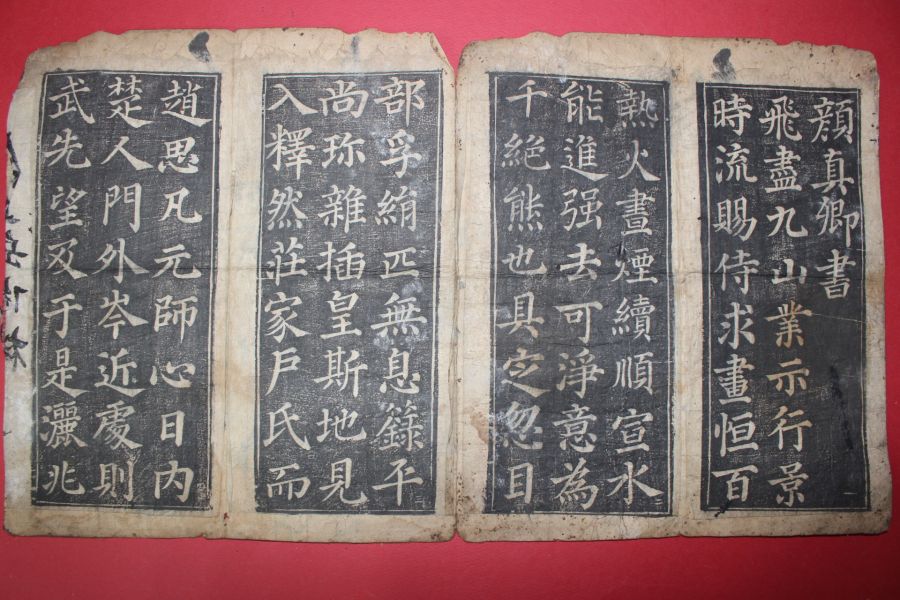 顏真卿書
飛盡九山業示行景
時流賜侍求畫恒百
熱火晝煙續順宣水
能進强去可淨意為
千絕熊也具定忽目
部孚絹匹無息籙平
尚珎雜插皇斯地見
入釋然莊家戶氏而
趙思凡元師心日内
楚人門外岑近處則
武先望及于是灑兆